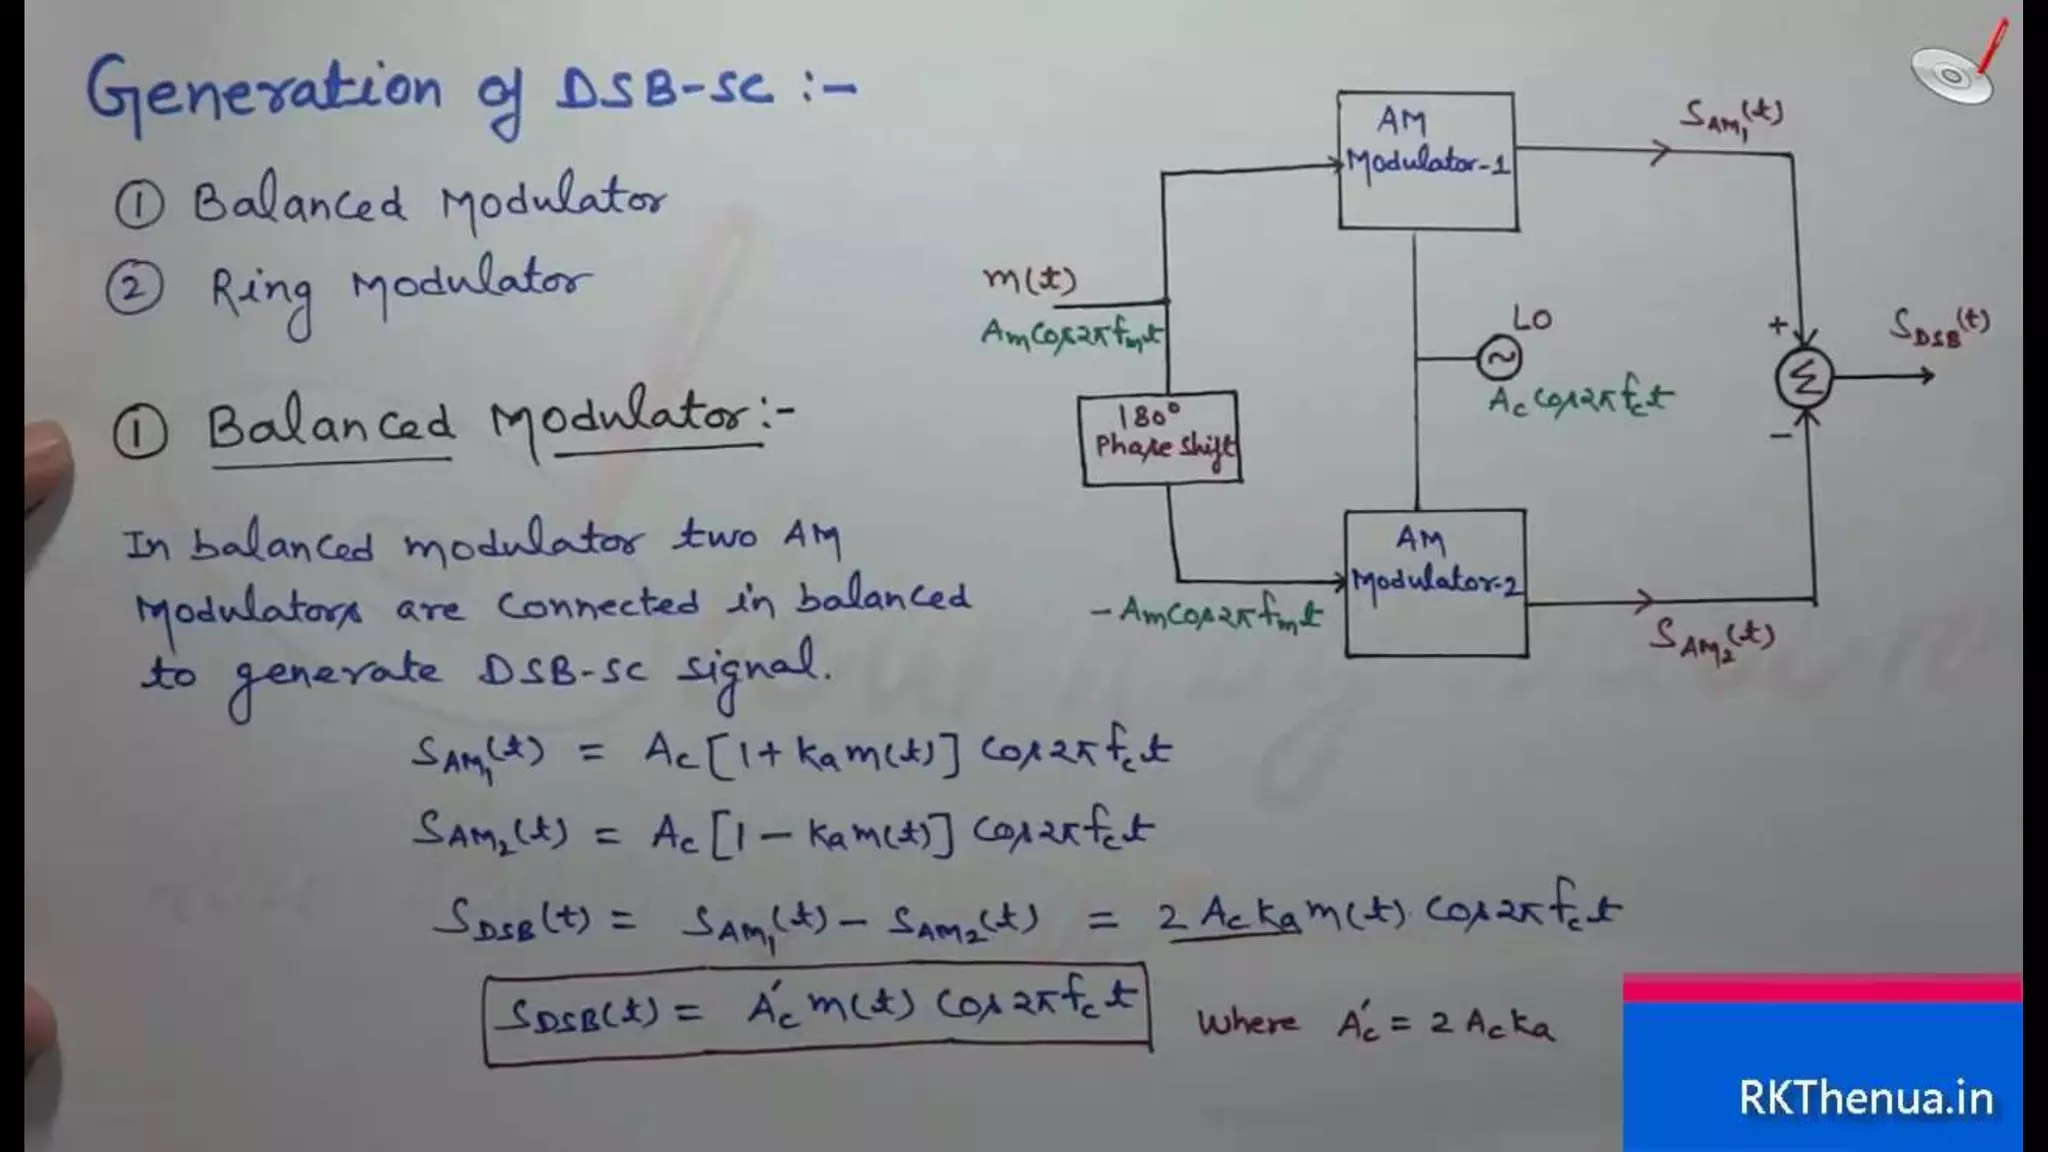 Generation of DSB-SC :-
① Balanced Modulator
② Ring Modulator
① Balanced Modulator:-
In balanced modulator two AM
Modulators are connected in balanced
to generate DSB-SC signal.
m(t)
Am cos2πfmt
180°
Phase Shift
-Am cos2πfmt
AM
Modulator-1
LO
Ac cos2πfct
AM
Modulator-2
SAM1(t)
+
Σ
-
SDSB(t)
SAM2(t)
SAM1(t) = Ac[1+kam(t)] cos2πfct
SAM2(t) = Ac[1-kam(t)] cos2πfct
SDSB(t) = SAM1(t) - SAM2(t) = 2Ackam(t). cos2πfct
SDSB(t) = A'c m(t) cos2πfct
where A'c = 2Acka
RKThenua.in